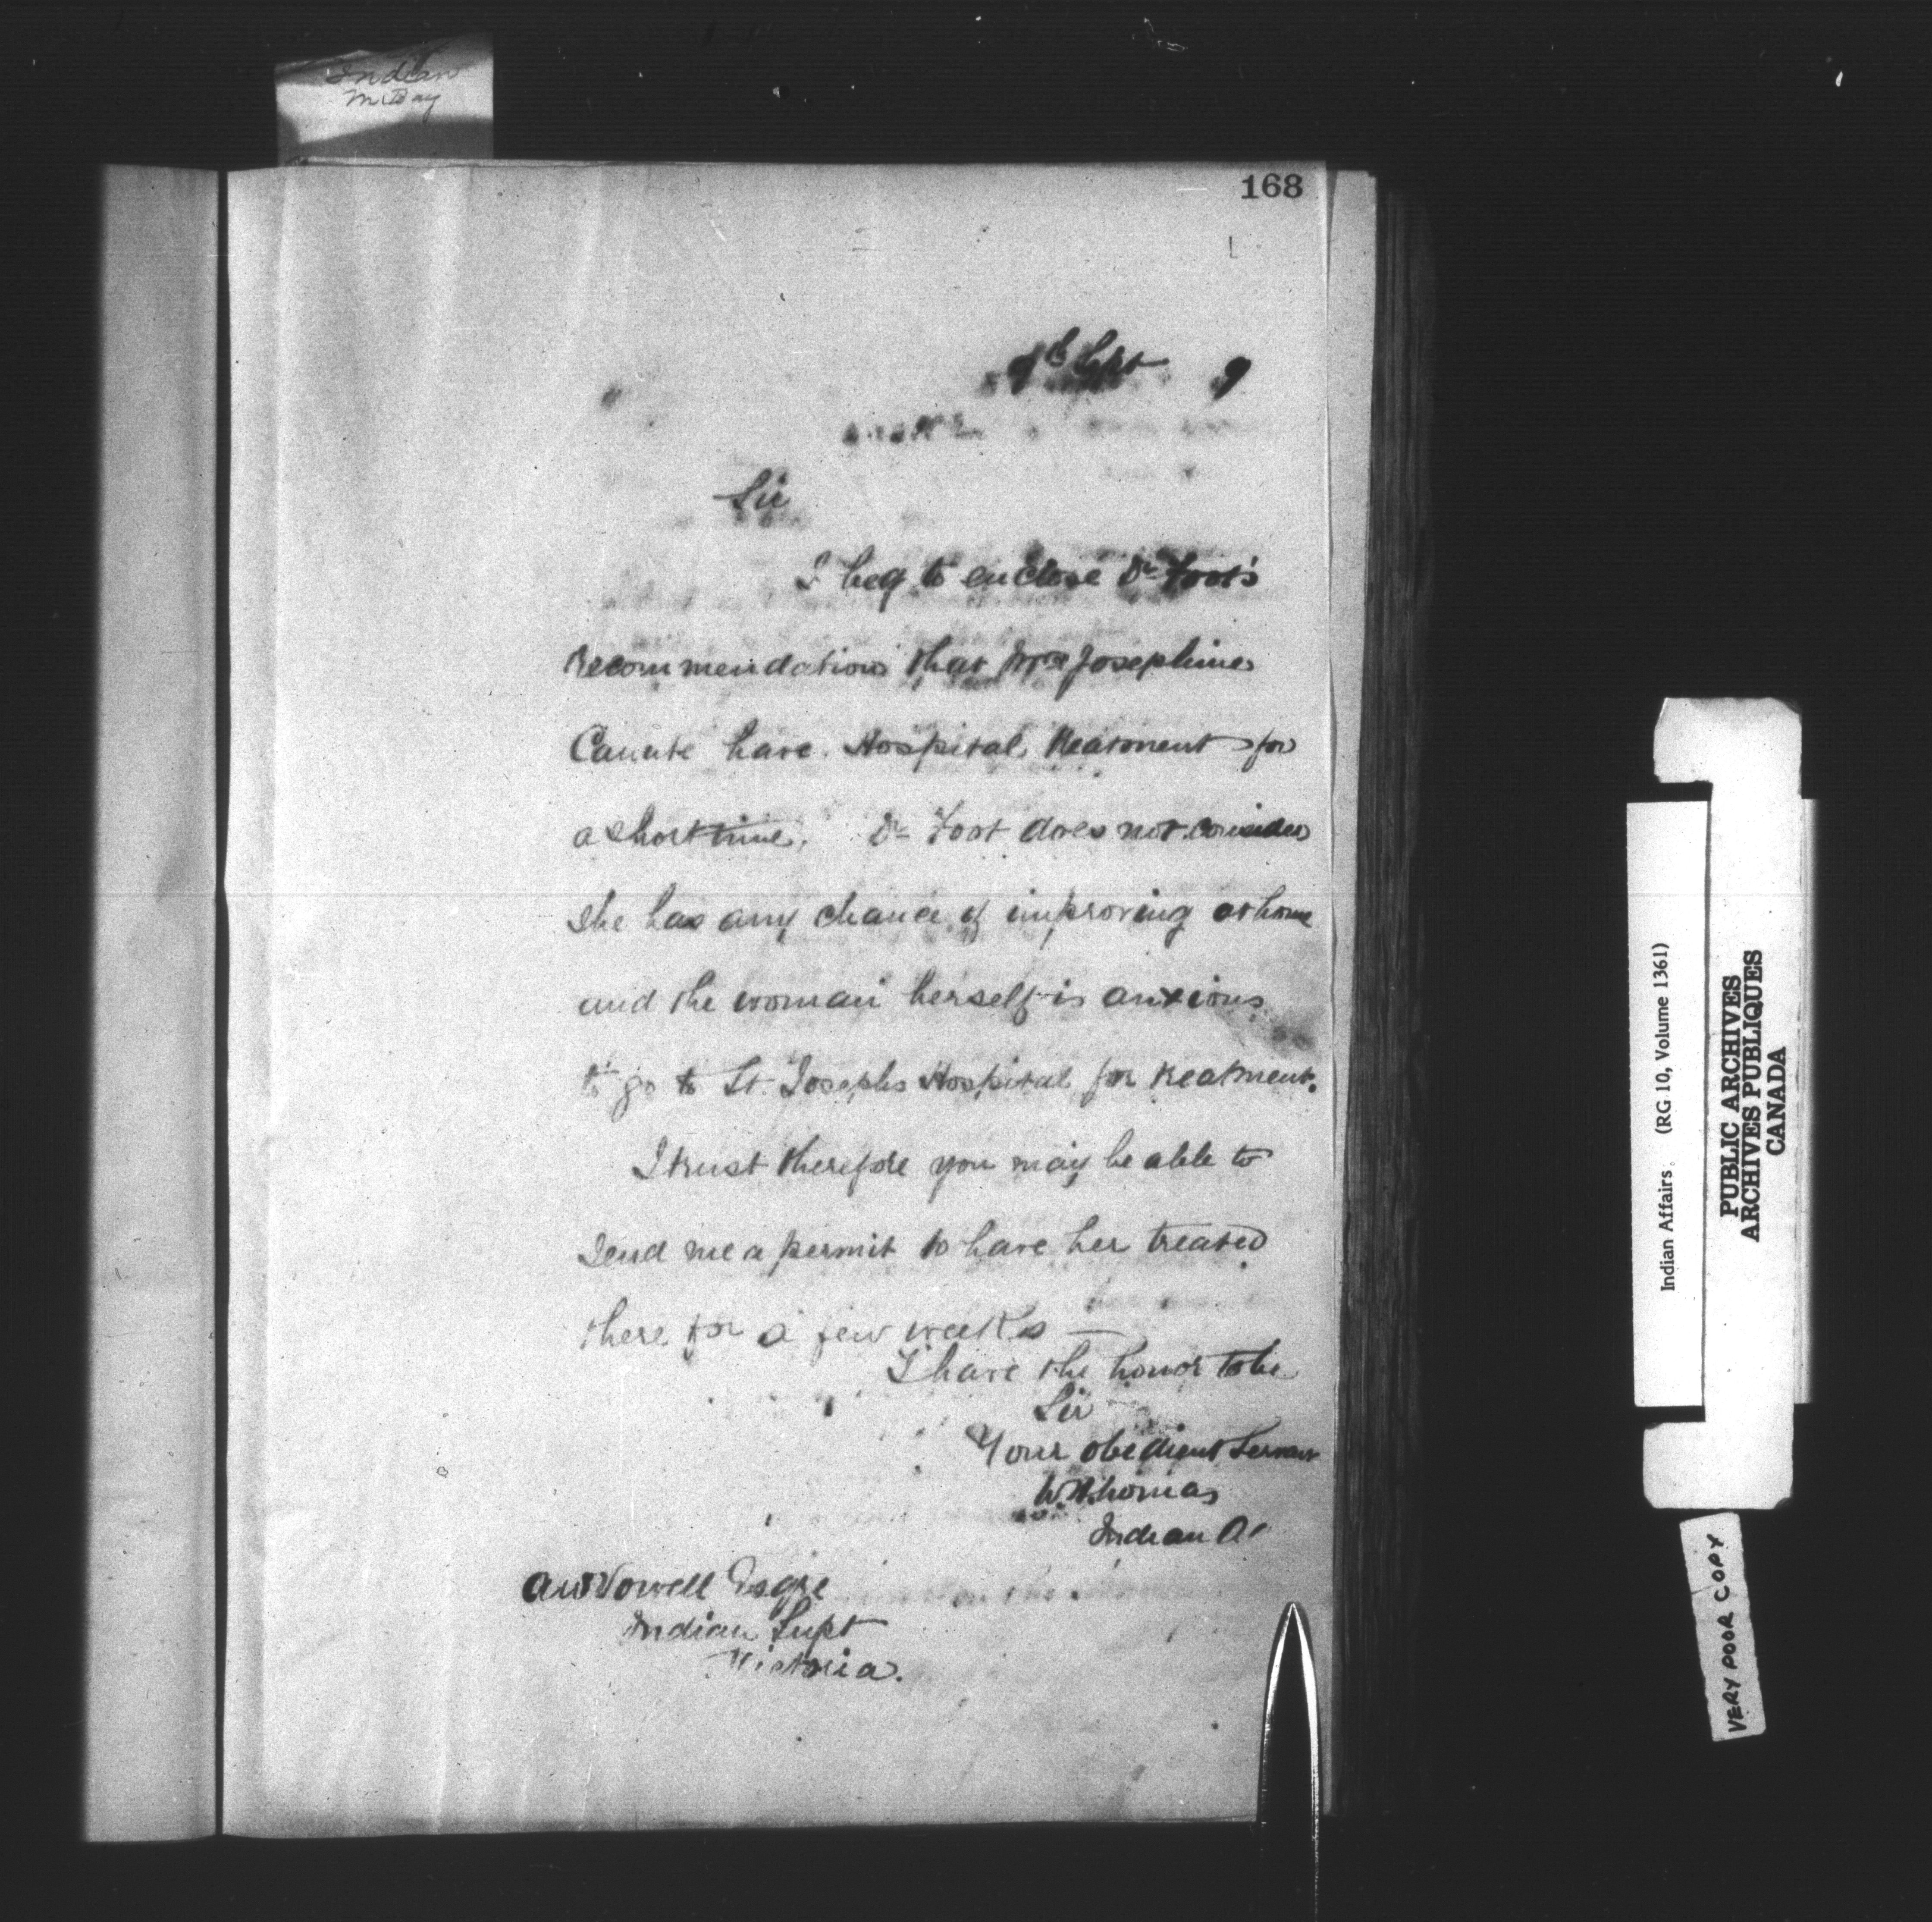 Indian
168
9th Sept 9
Sir
I beg to enclose Dr Foot's
recommendation that Mrs Josephine
Canute have Hospital treatment for
a short time. Dr Foot does not consider
she has any chance of improving at home
and the woman herself is anxious
to go to St. Josephs Hospital for treatment.
I trust therefore you may be able to
send me a permit to have her treated
there for a few weeks —
I have the honor to be
Sir
Your obedient Servant
W R Thomas
Indian A
A W Vowell Esqre
Indian Supt
Victoria.
Indian Affairs. (RG 10, Volume 1361)
PUBLIC ARCHIVES
ARCHIVES PUBLIQUES
CANADA
VERY POOR COPY